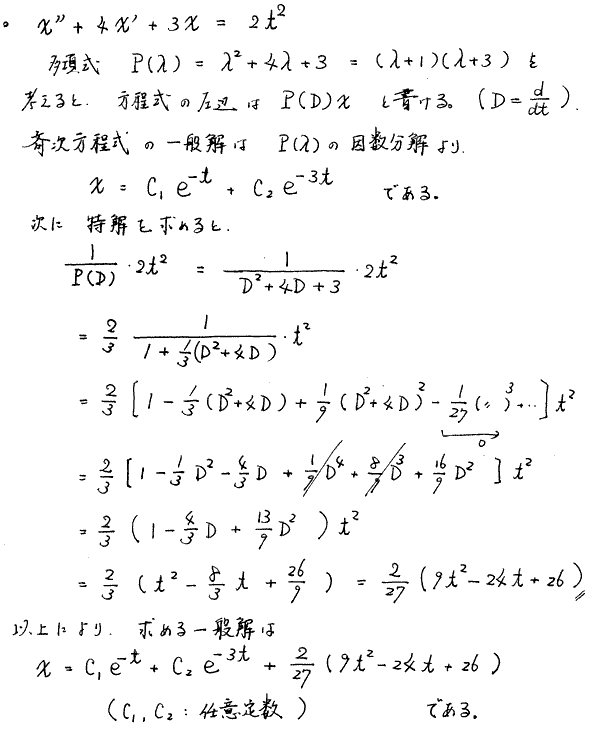 。 x'' + 4x' + 3x = 2t²
多項式 P(λ) = λ² + 4λ + 3 = (λ+1)(λ+3) を
考えると. 方程式の左辺は P(D)x と書ける。 (D = d/dt).
斉次方程式の一般解は P(λ)の因数分解より.
x = C₁ e^{-t} + C₂ e^{-3t} である。
次に 特解を求めると.
1/P(D) · 2t² = 1/(D² + 4D + 3) · 2t²
= 2/3 1/(1 + 1/3(D² + 4D)) · t²
= 2/3 [1 - 1/3 (D² + 4D) + 1/9 (D² + 4D)² - 1/27 (〃)³ + ‥] t²
0
= 2/3 [1 - 1/3 D² - 4/3 D + 1/9 D⁴ + 8/9 D³ + 16/9 D²] t²
= 2/3 (1 - 4/3 D + 13/9 D²) t²
= 2/3 (t² - 8/3 t + 26/9) = 2/27 (9t² - 24t + 26)
以上により. 求める一般解は
x = C₁ e^{-t} + C₂ e^{-3t} + 2/27 (9t² - 24t + 26)
(C₁, C₂ : 任意定数) である。